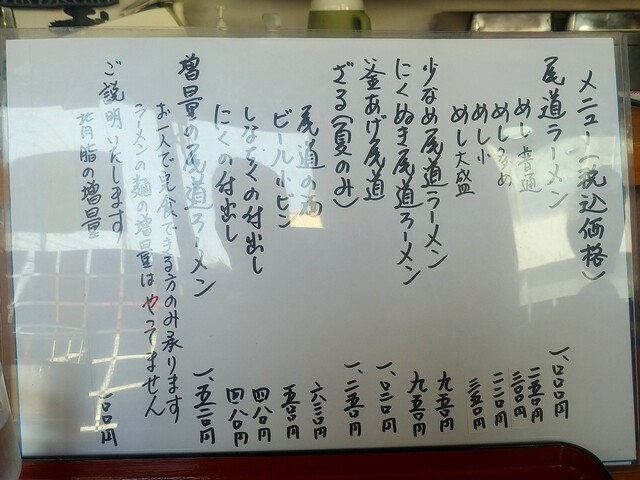 メニュー(税込価格)
尾道ラーメン 一、〇〇〇円
めし普通 二五〇円
めし多め 三〇〇円
めし小 二二〇円
めし大盛 三五〇円
少なめ尾道ラーメン 九五〇円
にくぬき尾道ラーメン 九五〇円
釜あげ尾道 一、〇二〇円
ざる(夏のみ) 一、二五〇円
尾道の 六三〇円
ビール小ビン 五〇〇円
しなちくの付出し 四八〇円
にくの付出し 四八〇円
増量の尾道ラーメン 一、五二〇円
お一人で完食できる方のみ承ります
ラーメンの麺の増量はやってません
ご説明いたします
背脂の増量 一〇〇円